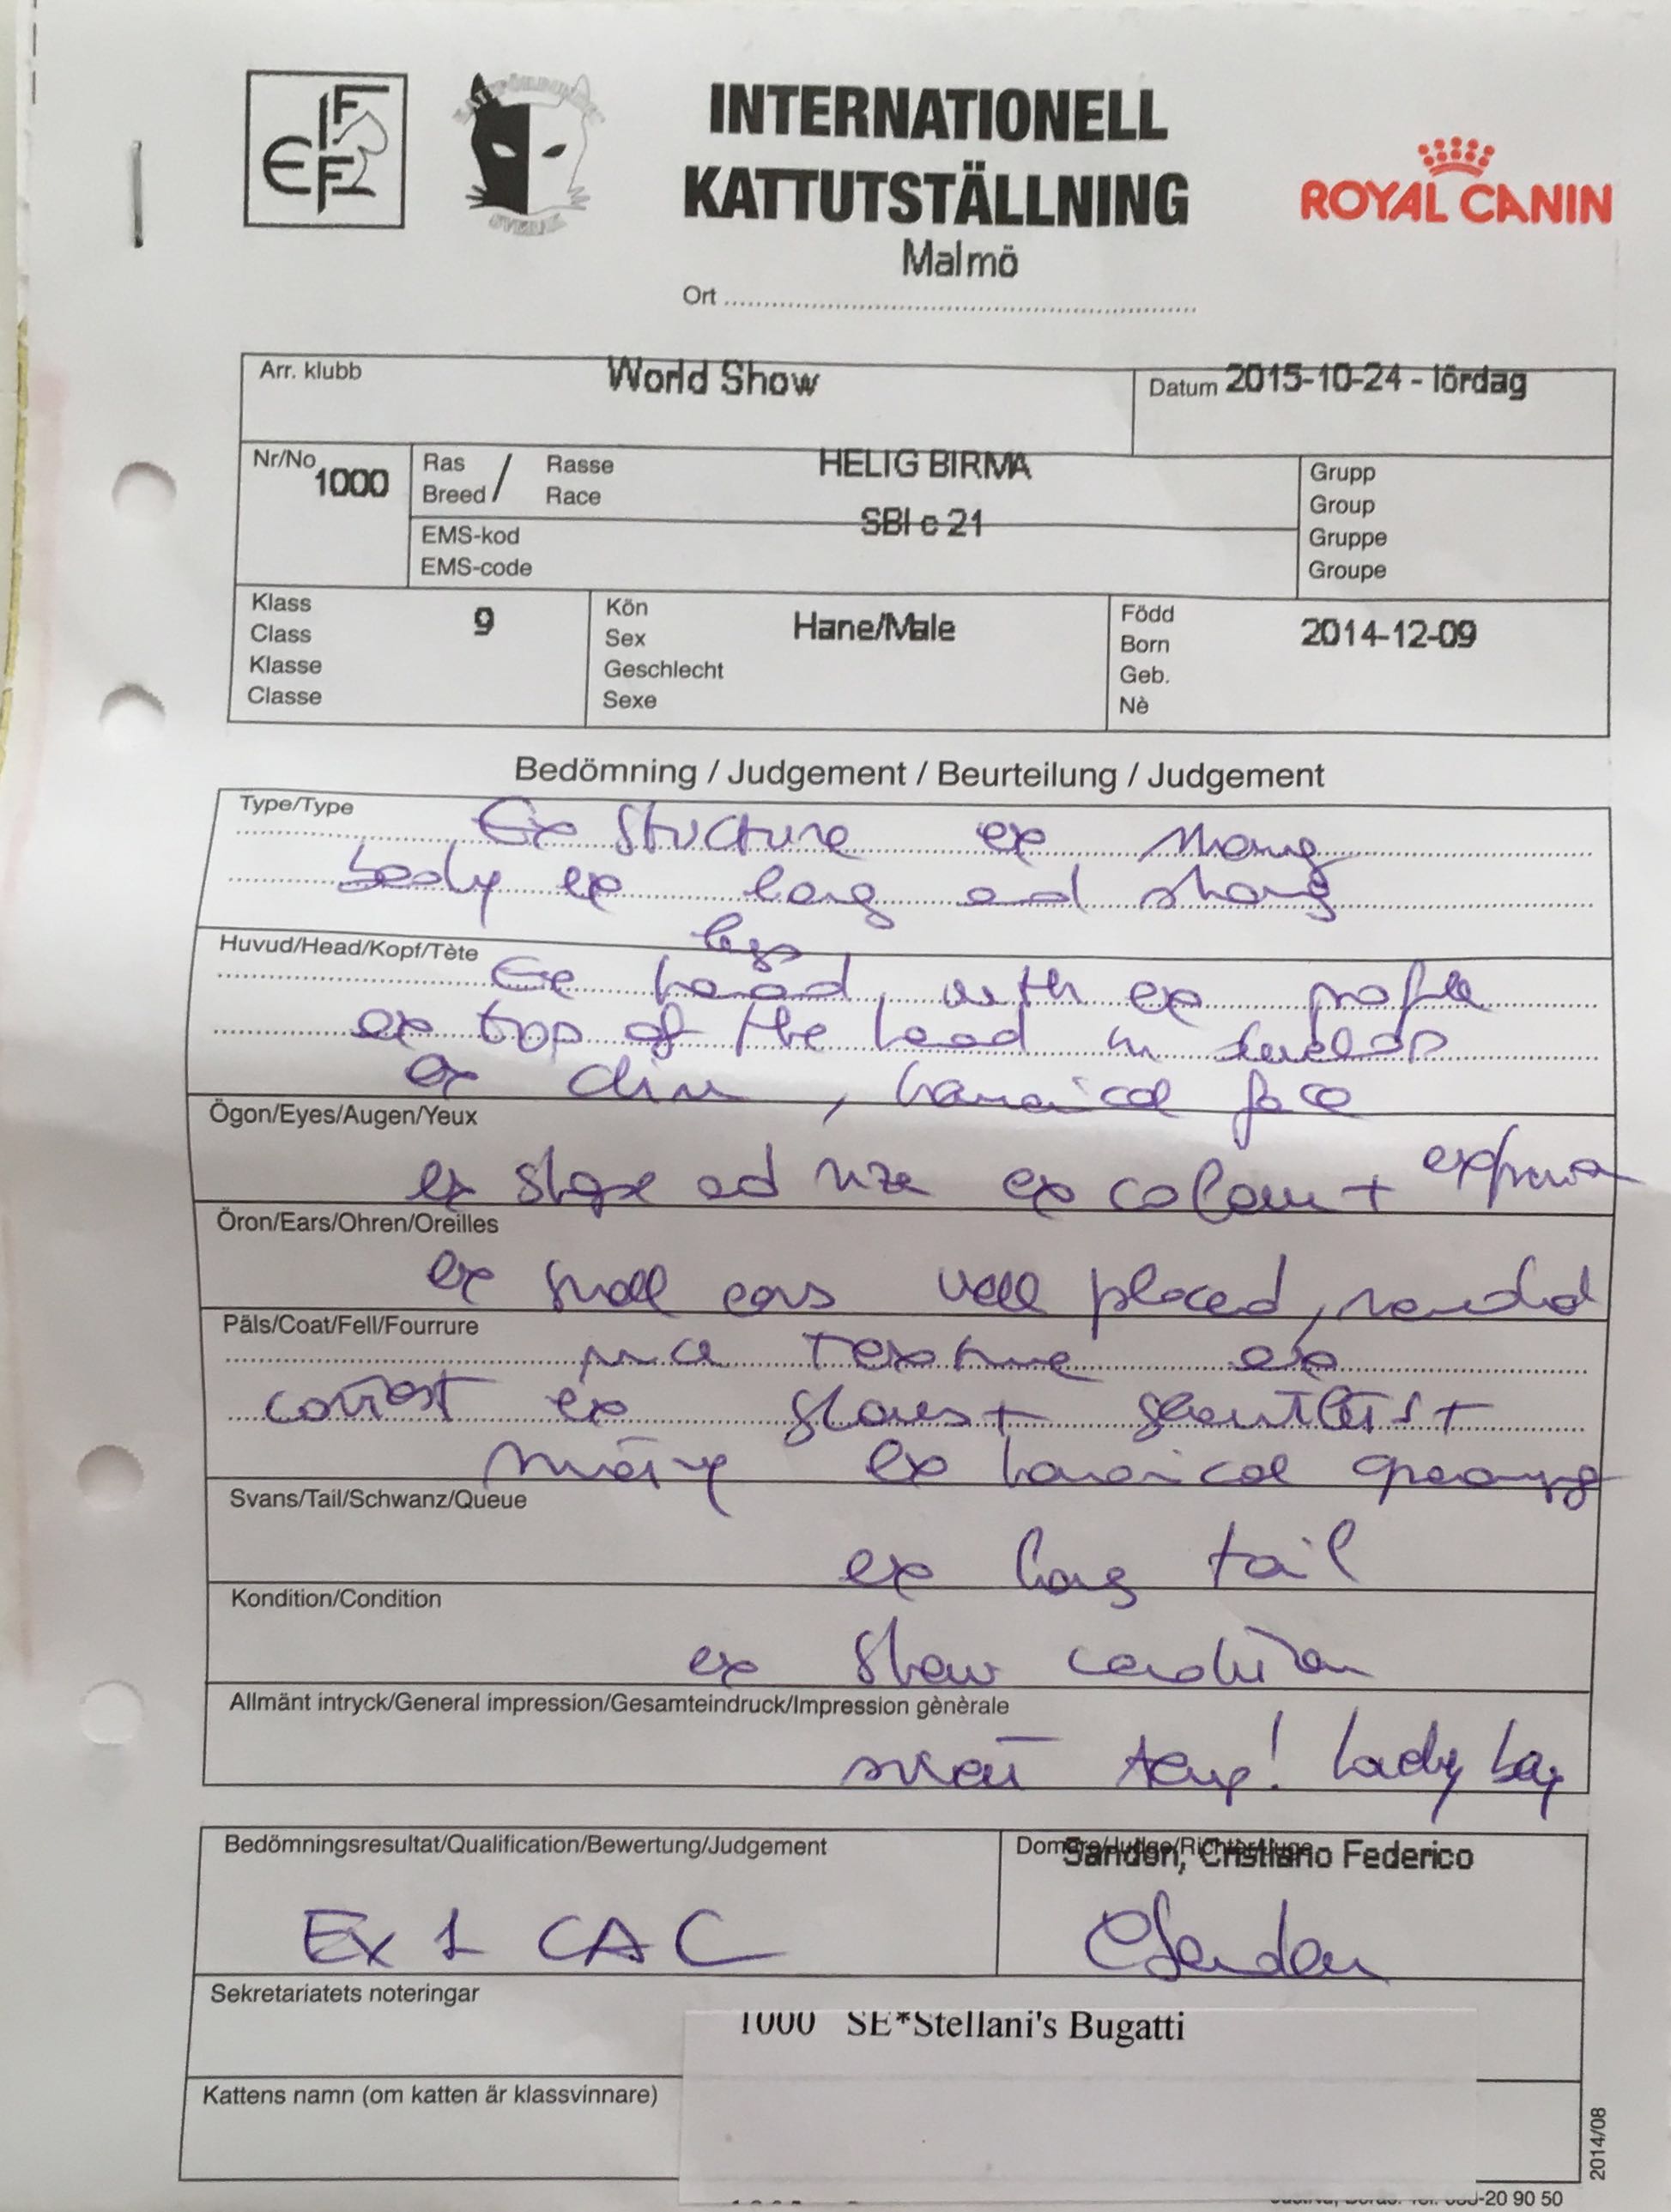 INTERNATIONELL
KATTUTSTÄLLNING
ROYAL CANIN
Malmö
Ort
Arr. klubb World Show
Datum 2015-10-24 - lördag
Nr/No 1000
Ras / Rasse
Breed Race
HELIG BIRMA
EMS-kod
EMS-code
SBI c 21
Grupp
Group
Gruppe
Groupe
Klass
Class
Klasse
Classe
9
Kön
Sex
Geschlecht
Sexe
Hane/Male
Född
Born
Geb.
Nè
2014-12-09
Bedömning / Judgement / Beurteilung / Judgement
Type/Type
Ex structure ex strong
body ex long and strong
legs
Huvud/Head/Kopf/Tète
Ex head, with ex profile
ex top of the head in
ex chin, face
Ögon/Eyes/Augen/Yeux
ex shape and size ex colour +
Öron/Ears/Ohren/Oreilles
ex small ears well placed, rounded
Päls/Coat/Fell/Fourrure
nice texture ex
contrast ex gloves +
ex
Svans/Tail/Schwanz/Queue
ex long tail
Kondition/Condition
ex show condition
Allmänt intryck/General impression/Gesamteindruck/Impression gènèrale
temp! Lady
Bedömningsresultat/Qualification/Bewertung/Judgement
Ex 1 CAC
Sandon, Cristiano Federico
CSandon
Sekretariatets noteringar
1000 SE*Stellani's Bugatti
Kattens namn (om katten är klassvinnare)
2014/08
-20 90 50